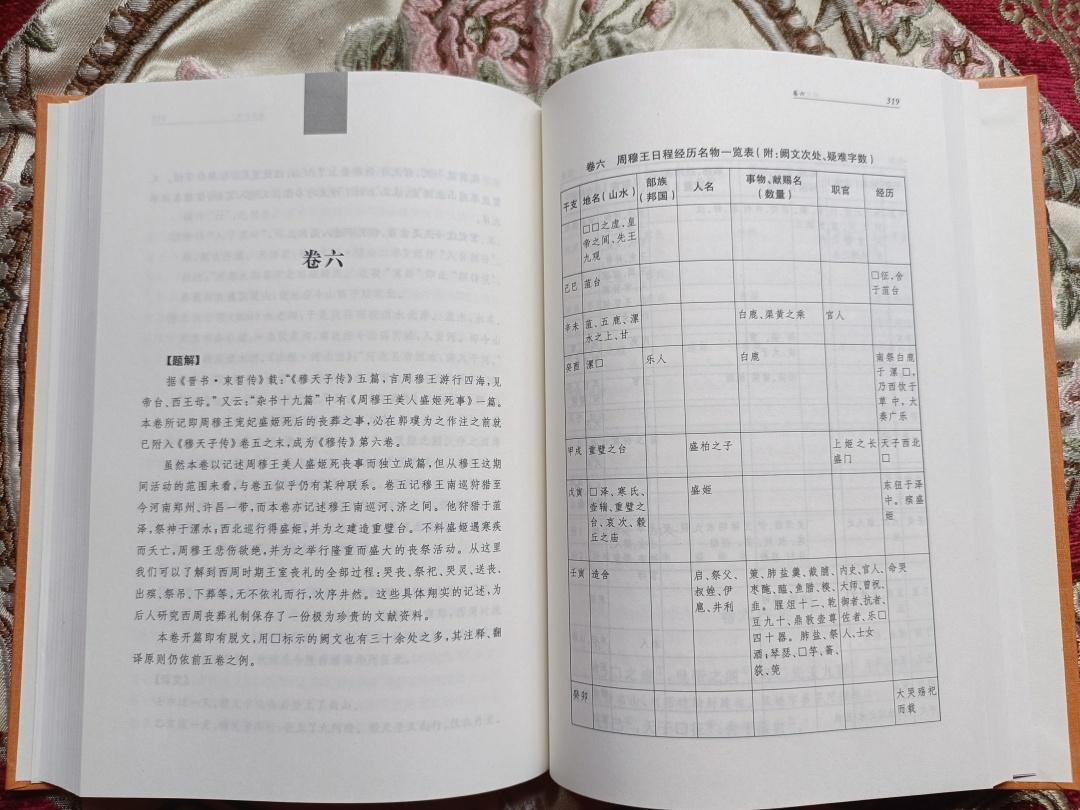 卷六
【题解】
据《晋书·束皙传》载：“《穆天子传》五篇，言周穆王游行四海，见
帝台、西王母。”又云：“杂书十九篇”中有《周穆王美人盛姬死事》一篇。
本卷所记即周穆王宠妃盛姬死后的丧葬之事，必在郭璞为之作注之前就
已附入《穆天子传》卷五之末，成为《穆传》第六卷。
虽然本卷以记述周穆王美人盛姬死丧事而独立成篇，但从穆王这期
间活动的范围来看，与卷五似乎仍有某种联系。卷五记穆王南巡狩猎至
今河南郑州、许昌一带，而本卷亦记述穆王南巡河、济之间。他狩猎于菹
泽，祭神于漯水；西北巡行得盛姬，并为之建造重璧台。不料盛姬遇寒疾
而夭亡，周穆王悲伤欲绝，并为之举行隆重而盛大的丧祭活动。从这里
我们可以了解到西周时期王室丧礼的全部过程：哭丧、祭祀、哭灵、送丧、
出殡、祭吊、下葬等，无不依礼而行，次序井然。这些具体翔实的记述，为
后人研究西周丧葬礼制保存了一份极为珍贵的文献资料。
本卷开篇即有脱文，用□标示的阙文也有三十余处之多，其注释、翻
译原则仍依前五卷之例。
卷六 319
卷六 周穆王日程经历名物一览表（附：阙文次处、疑难字数）
干支 地名（山水） 部族（邦国） 人名 事物、献赐名（数量） 职官 经历
□□之虚，皇
帝之闾、先王
九观
己巳 菹台 □征，舍
于菹台
辛未 菹、五鹿、漯
水之上、甘 白鹿、渠黄之乘 官人
癸酉 漯□ 乐人 白鹿 南祭白鹿
于漯□，
乃西饮于
草中，大
奏广乐
甲戌 重璧之台 盛柏之子 上姬之长
盛门 天子西北
□
戊寅 □泽、寒氏、
壶輶、重璧之
台、哀次、毂
丘之庙 盛姬 东佃于泽
中。殡盛
姬
壬寅 造舍 启、祭父、
叔姓、伊
扈、井利 菹、肺盐羹、胾脯、
枣醢、醢、鱼腊、糗、
韭。腥俎十二、乾
豆九十、鼎敦壶尊
四十器。肺盐、祭
酒；琴瑟、□竽、籥、
筦 内史、官人、
大师、曾祝、
御者、抗者、
佐者、乐□
人、士女 命哭
癸卯 大哭殇祀
而载